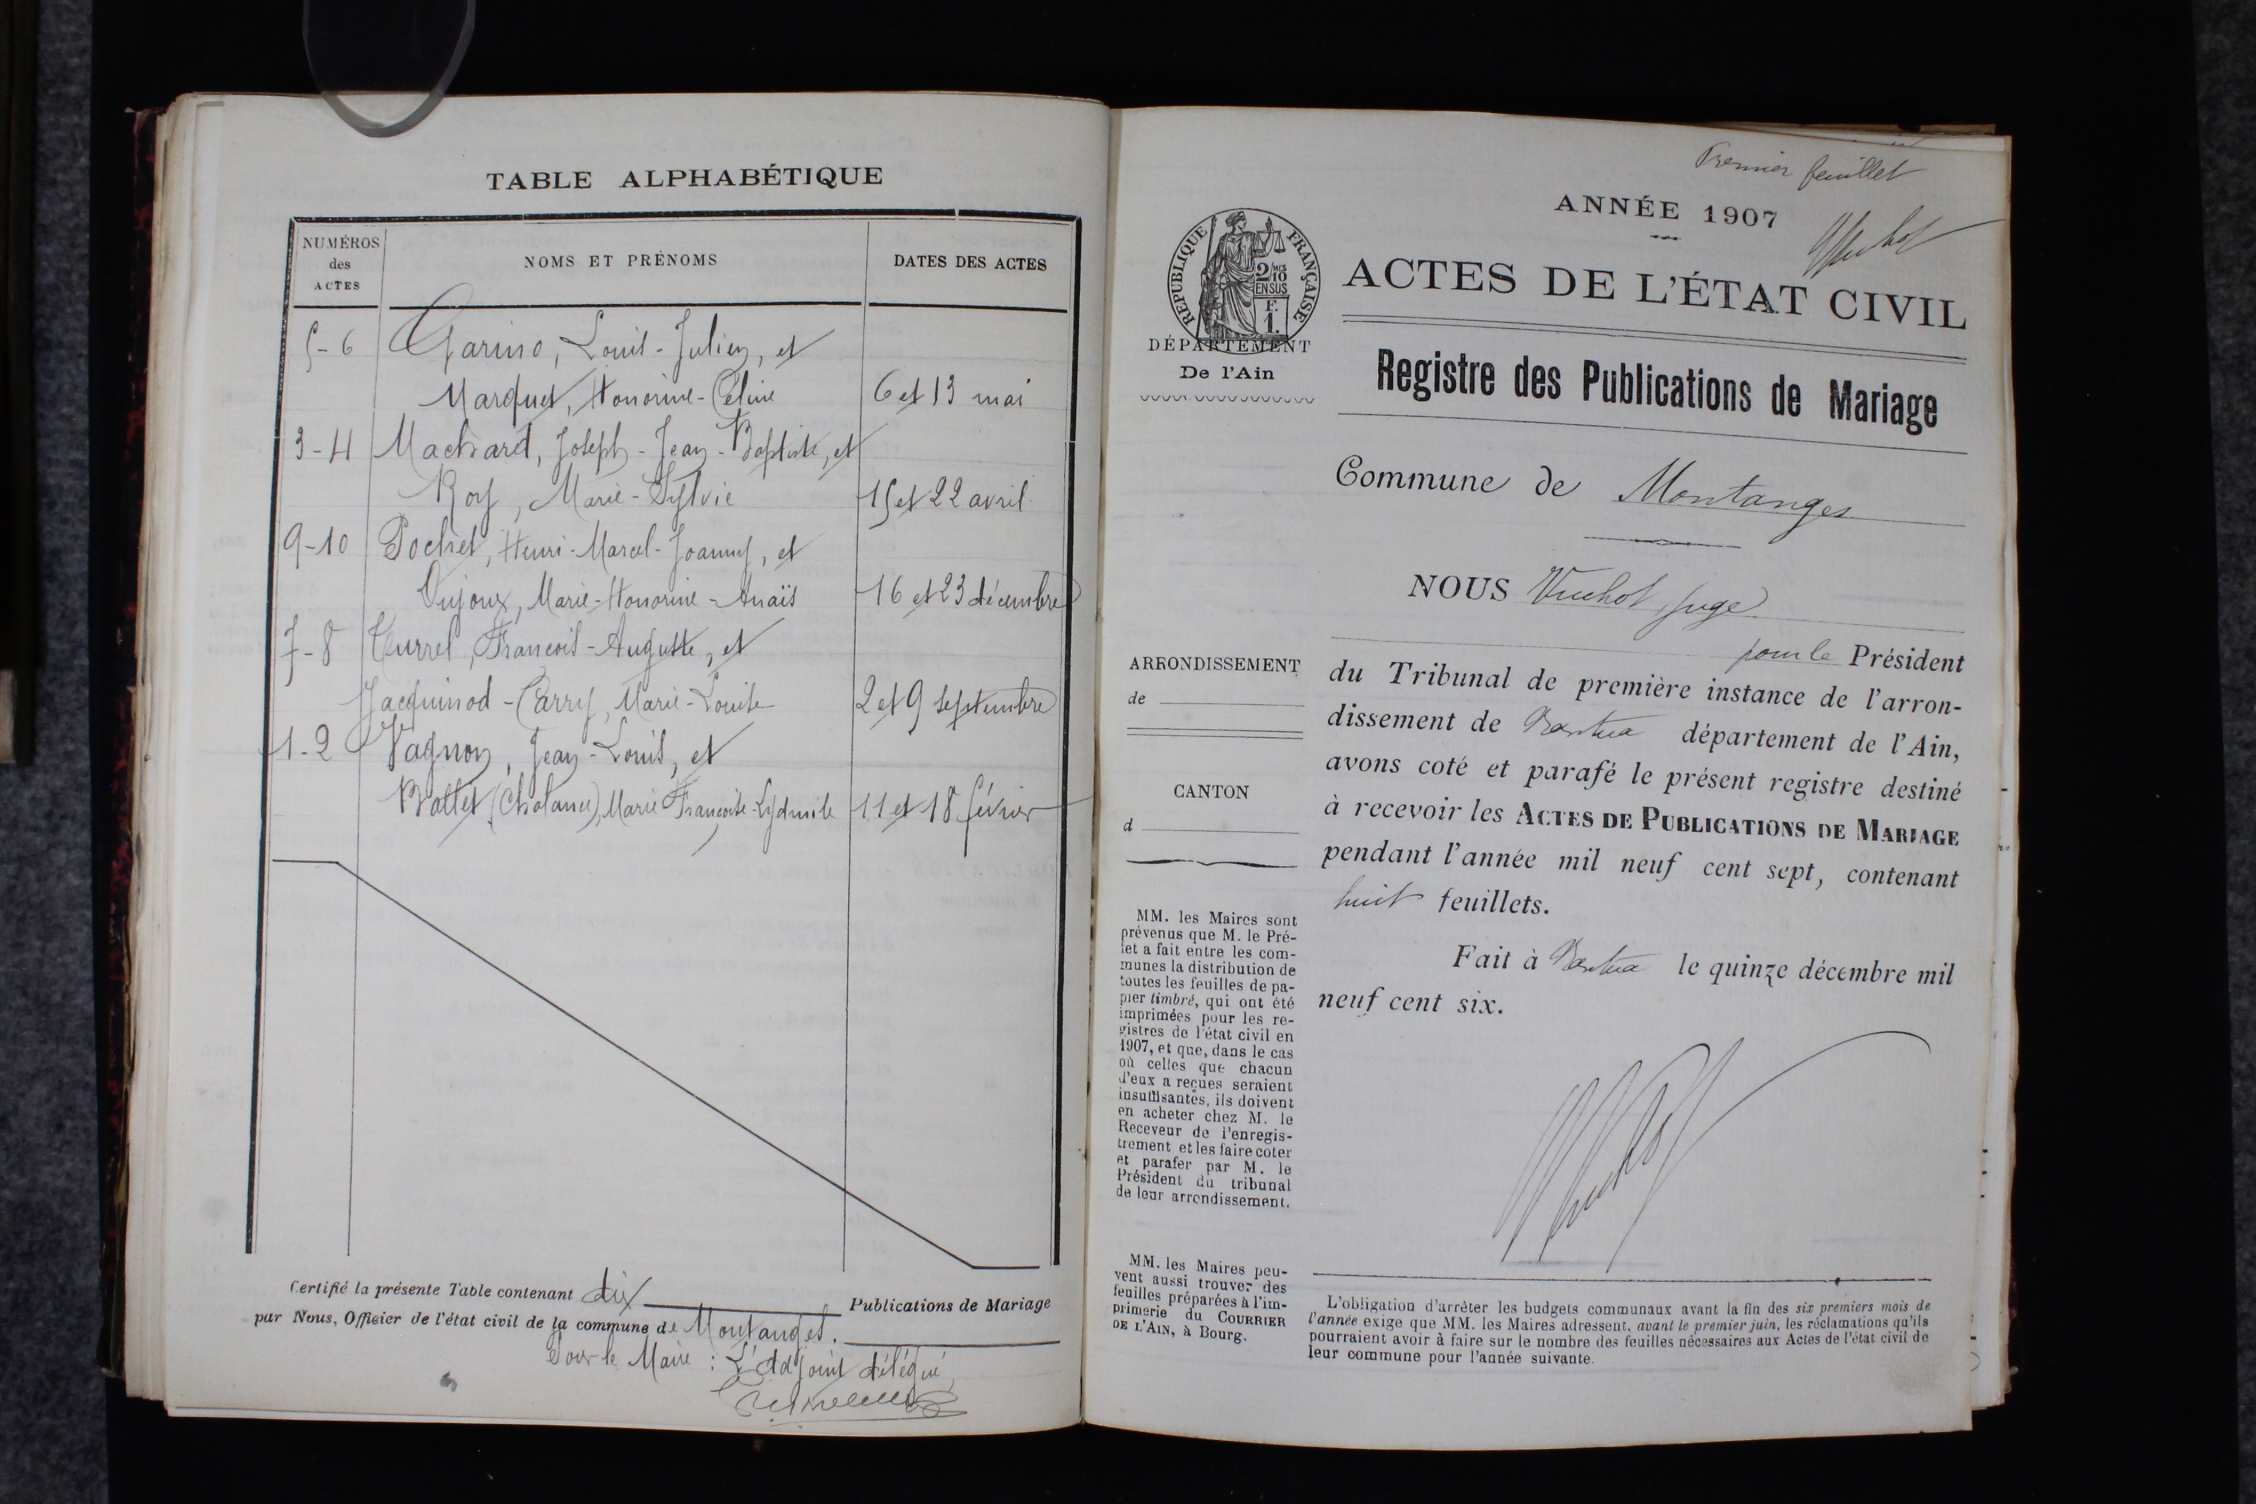 TABLE ALPHABÉTIQUE
NUMÉROS
des
ACTES
NOMS ET PRÉNOMS
DATES DES ACTES
5-6 Garino, Louis-Julien, et
Marquet, Honorine-Céline 6 et 13 mai
3-4 Machard, Joseph-Jean-Baptiste, et
Roy, Marie-Sylvie 15 et 22 avril
9-10 Pochet, Henri-Marcel-Joanny, et
Dujoux, Marie-Honorine-Anaïs 16 et 23 décembre
7-8 Turrel, François-Auguste, et
Jacquinod-Carry, Marie-Louise 2 et 9 septembre
1-2 Vagnon, Jean-Louis, et
Ballet Marie Françoise 11 et 18 février
Certifié la présente Table contenant dix Publications de Mariage
par Nous, Officier de l'état civil de la commune de Montanges.
Pour le Maire : L'Adjoint délégué,
Premier feuillet
ANNÉE 1907
Vuchot
RÉPUBLIQUE FRANÇAISE
2/10
EN SUS
F.
1.
ACTES DE L'ÉTAT CIVIL
DÉPARTEMENT
De l'Ain
Registre des Publications de Mariage
Commune de Montanges
NOUS Vuchot, juge
pour le Président
du Tribunal de première instance de l'arron-
dissement de Nantua département de l'Ain,
avons coté et parafé le présent registre destiné
à recevoir les ACTES DE PUBLICATIONS DE MARIAGE
pendant l'année mil neuf cent sept, contenant
huit feuillets.
Fait à Nantua le quinze décembre mil
neuf cent six.
Vuchot
ARRONDISSEMENT
de
CANTON
d
MM. les Maires sont
prévenus que M. le Pré-
fet a fait entre les com-
munes la distribution de
toutes les feuilles de pa-
pier timbré, qui ont été
imprimées pour les re-
gistres de l'état civil en
1907, et que, dans le cas
où celles que chacun
d'eux a reçues seraient
insuffisantes, ils doivent
en acheter chez M. le
Receveur de l'enregis-
trement et les faire coter
et parafer par M. le
Président du tribunal
de leur arrondissement.
MM. les Maires peu-
vent aussi trouver des
feuilles préparées à l'im-
primerie du COURRIER
DE L'AIN, à Bourg.
L'obligation d'arrêter les budgets communaux avant la fin des six premiers mois de
l'année exige que MM. les Maires adressent, avant le premier juin, les réclamations qu'ils
pourraient avoir à faire sur le nombre des feuilles nécessaires aux Actes de l'état civil de
leur commune pour l'année suivante.